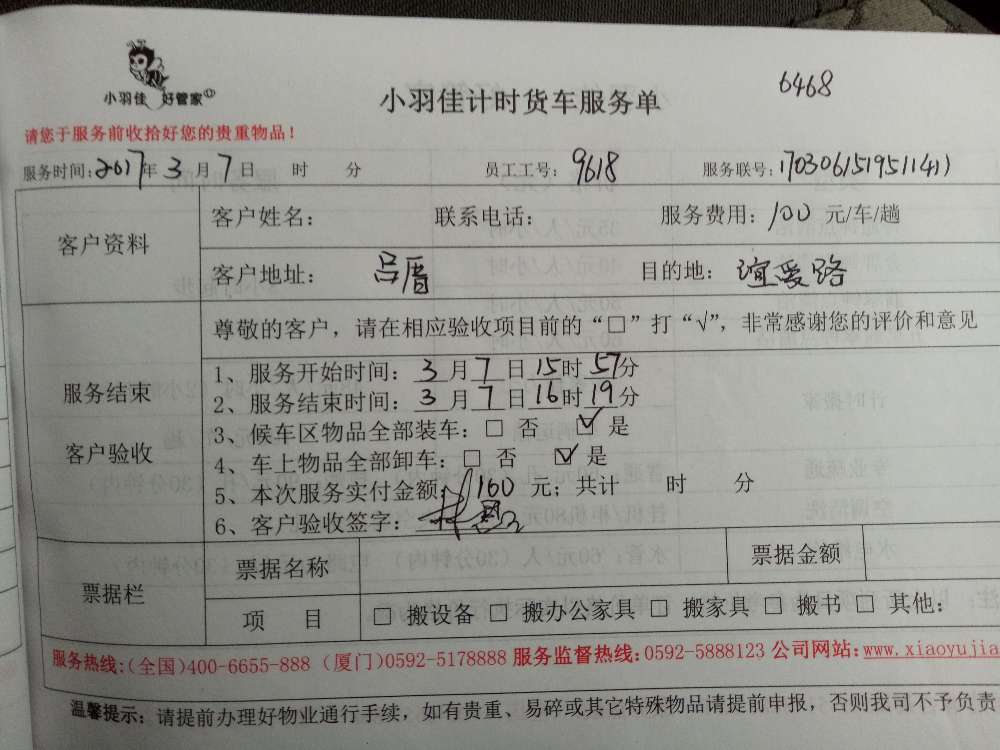 6468
小羽佳 好管家
小羽佳计时货车服务单
请您于服务前收拾好您的贵重物品！
服务时间：2017年3月7日 时 分 员工工号：9618 服务联号：1703061519511411
客户资料
客户姓名： 联系电话： 服务费用：100 元/车/趟
客户地址： 吕厝 目的地：谊爱路
服务结束
客户验收
尊敬的客户，请在相应验收项目前的“□”打“√”，非常感谢您的评价和意见
1、服务开始时间：3月7日15时57分
2、服务结束时间：3月7日16时19分
3、候车区物品全部装车：□ 否 ☑ 是
4、车上物品全部卸车：□ 否 ☑ 是
5、本次服务实付金额：100 元；共计 时 分
6、客户验收签字：
票据栏
票据名称 票据金额
项 目 □ 搬设备 □ 搬办公家具 □ 搬家具 □ 搬书 □ 其他：
服务热线:(全国)400-6655-888 (厦门)0592-5178888 服务监督热线:0592-5888123 公司网站:www.xiaoyujia
温馨提示：请提前办理好物业通行手续，如有贵重、易碎或其它特殊物品请提前申报，否则我司不予负责